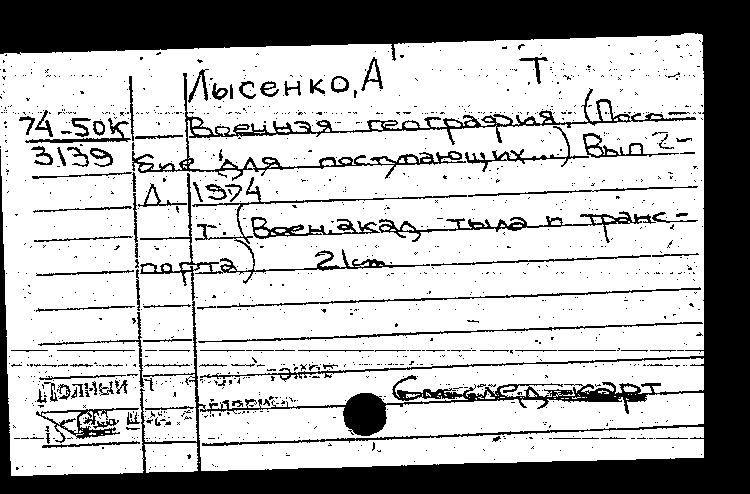 Лысенко, А Т
74-50к Военная география. (Посо-
3139 бие для поступающих...) Вып. 2-
Л., 1974
т. (Воен. акад. тыла и транс-
порта) 2 km
Полный томов
см.
См след карт